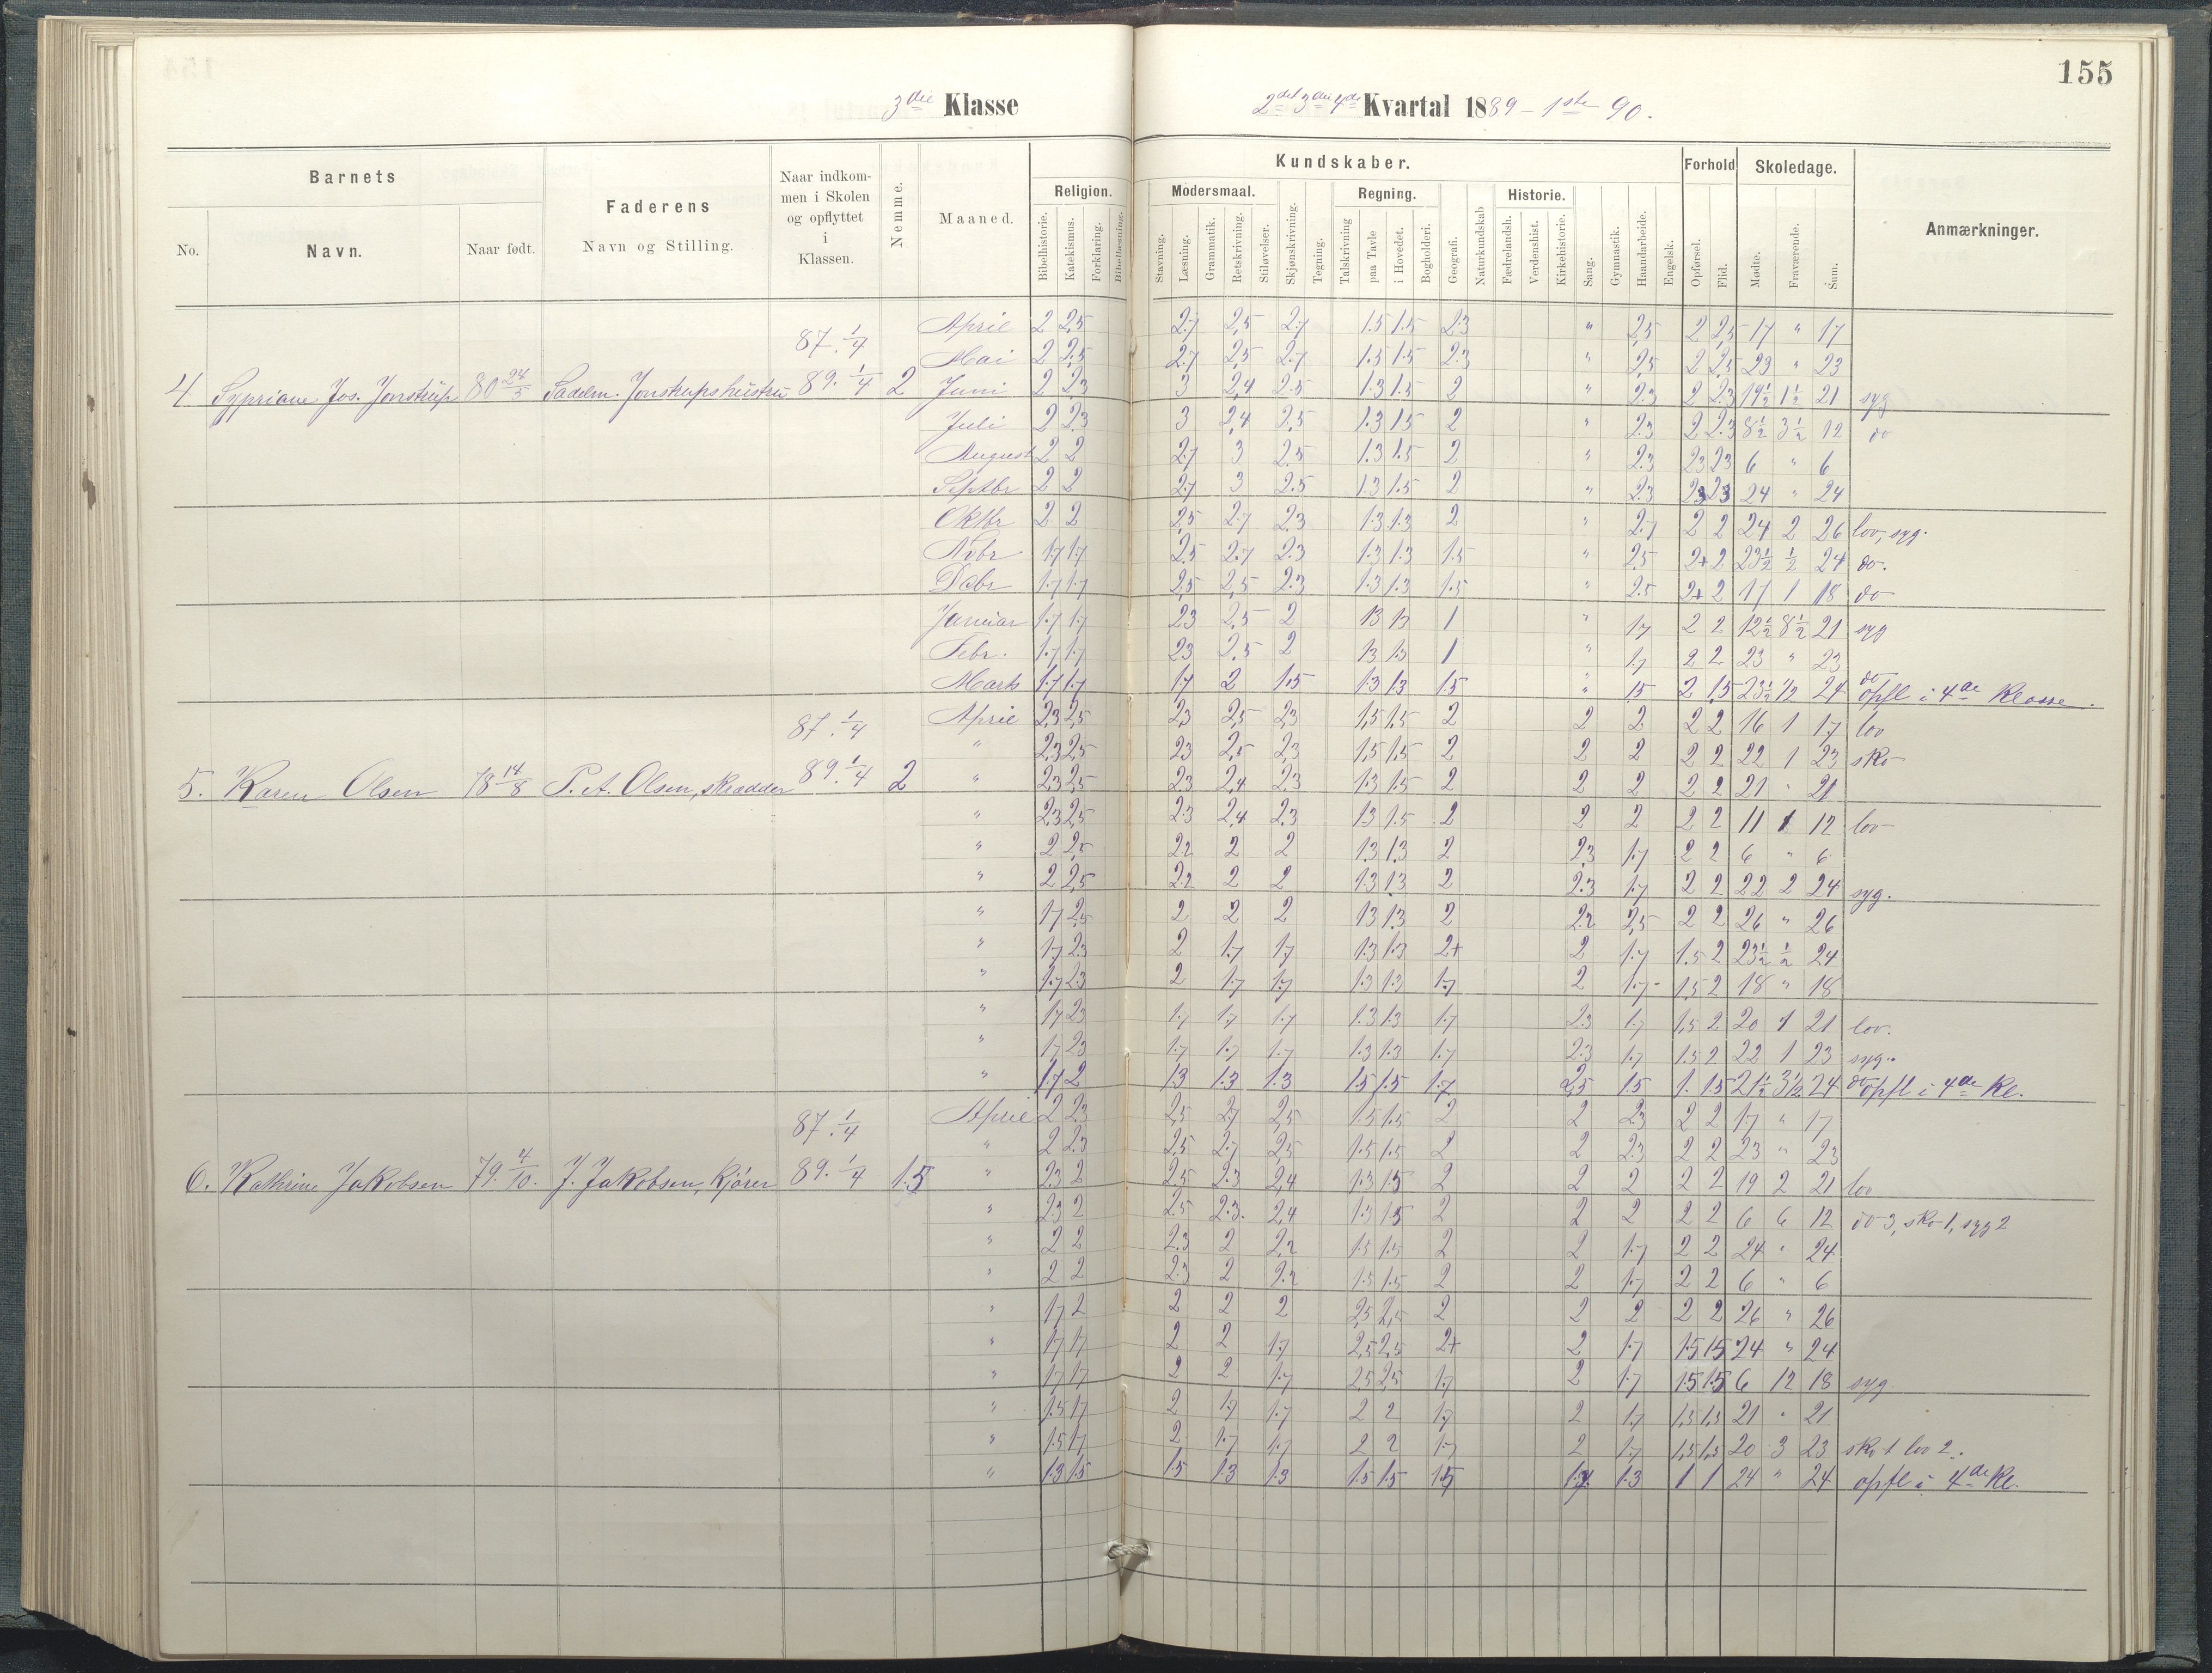 155
3die Klasse
2det 3die 4de Kvartal 1889 - 1ste 90.
Barnets
Faderens
Naar indkommen i Skolen og opflyttet i Klassen.
Nemme.
Maaned.
Kundskaber.
Forhold
Skoledage.
Anmærkninger.
No.
Navn.
Naar født.
Navn og Stilling.
Religion.
Modersmaal.
Regning.
Historie.
Bibelhistorie. Katekismus. Forklaring. Bibellæsning. Stavning. Læsning. Grammatik. Retskrivning. Stiløvelser. Skjønskrivning. Tegning. Talskrivning paa Tavle i Hovedet. Bogholderi. Geografi. Naturkundskab Fædrelandsh. Verdenshist. Kirkehistorie. Sang. Gymnastik. Haandarbeide. Engelsk. Opførsel. Flid. Mødte. Fraværende. Sum.
87. 1/4
April 2 2,5 2.7 2,5 2.7 1.5 1.5 2.3 " 2,5 2 2,5 17 " 17
Mai 2 2,5 2.7 2,5 2.7 1.5 1.5 2.3 " 2,5 2 2,5 23 " 23
4 Sypriane Jos. Jonstrup 80 24/5 Sadelm. Jonstrups hustru 89. 1/4 2 Juni 2 2.3 3 2,4 2.5 1.3 1.5 2 " 2.3 2 2.3 19 1/2 1 1/2 21 syg
Juli 2 2.3 3 2,4 2,5 1.3 1.5 2 " 2.3 2 2.3 8 1/2 3 1/2 12 do
August 2 2 2.7 3 2.5 1.3 1.5 2 " 2.3 2.3 2.3 6 " 6
Septbr 2 2 2.7 3 2.5 1.3 1.5 2 " 2.3 2.3 2.3 24 " 24
Oktbr 2 2 2,5 2.7 2.3 1.3 1.3 2 " 2.7 2 2 24 2 26 lov, syg.
Nvbr 1.7 1.7 2.5 2.7 2.3 1.3 1.3 1.5 " 2.5 2+ 2 23 1/2 1/2 24 do.
Dcbr 1.7 1.7 2,5 2,5 2.3 1.3 1.3 1.5 " 2.5 2+ 2 17 1 18 do
Januar 1.7 1.7 2.3 2,5 2 1.3 1.3 1 " 1.7 2 2 12 1/2 8 1/2 21 syg
Febr. 1.7 1.7 2.3 2.5 2 1.3 1.3 1 " 1.7 2 2 23 " 23
Marts 1.7 1.7 1.7 2 1.5 1.3 1.3 1.5 " 1.5 2 1.5 23 1/2 1/2 24 do opfl i 4de Klasse.
87. 1/4
April 2.3 2,5 2.3 2,5 2,3 1,5 1.5 2 2 2 2 2 16 1 17 lov
" 2.3 2,5 2.3 2,5 2,3 1,5 1.5 2 2 2 2 2 22 1 23 sko
5. Karen Olsen 78 14/8 P. A. Olsen, skrædder 89. 1/4 2 " 2.3 2,5 2.3 2,4 2.3 1.3 1.5 2 2 2 2 2 21 " 21
" 2.3 2,5 2.3 2,4 2,3 1.3 1.5 2 2 2 2 2 11 1 12 lov
" 2 2,5 2.2 2 2 1.3 1.3 2 2.3 1.7 2 2 6 " 6
" 2 2,5 2.2 2 2 1.3 1.3 2 2.3 1.7 2 2 22 2 24 syg.
" 1.7 2,5 2 2 2 1.3 1.3 2 2.2 2,5 2 2 26 " 26
" 1.7 2.3 2 1.7 1.7 1.3 1.3 2+ 2 1.7 1.5 2 23 1/2 1/2 24
" 1.7 2.3 2 1.7 1.7 1.3 1.3 1.7 2 1.7 1.5 2 18 " 18
" 1.7 2.3 1.7 1.7 1.7 1.3 1.3 1.7 2.3 1.7 1.5 2 20 1 21 lov.
" 1.7 2.3 1.7 1.7 1.7 1.3 1.3 1.7 2.3 1.7 1.5 2 22 1 23 syg.
" 1.7 2 1.3 1.3 1.3 1.5 1.5 1.7 2,5 1.5 1. 1.5 21 1/2 3 1/2 24 do opfl i 4de Kl.
87. 1/4
April 2 2.3 2,5 2.7 2,5 1.5 1.5 2 2 2.3 2 2 17 " 17
" 2 2.3 2,5 2.7 2,5 1.5 1.5 2 2 2.3 2 2 23 " 23
6. Kathrine Jakobsen 79. 4/10. J. Jakobsen, kjører 89. 1/4 1.5 " 2.3 2 2.5 2.3 2,4 1.3 1.5 2 2 2 2 2 19 2 21 lov
" 2.3 2 2.5 2.3. 2,4 1.3 1.5 2 2 2 2 2 6 6 12 do 3, sko 1, syg 2
" 2 2 2.3 2 2,2 1.5 1.5 2 2 1.7 2 2 24 " 24
" 2 2 2.3 2 2.2 1.5 1.5 2 2 1.7 2 2 6 " 6
" 1.7 2 2 2 2 2,5 2,5 2 2 2 2 2 26 " 26
" 1.7 1.7 2 2 1.7 2,5 2,5 2+ 2 1.7 1.5 1.5 24 " 24
" 1.7 1.7 2 2 1.7 2,5 2,5 1.7 2 1.7 1.5 1.5 6 12 18 syg
" 1.5 1.7 2 1.7 1.7 2 2 1.7 2 1.7 1,5 1,5 21 " 21
" 1.5 1.7 2 1.7 1.7 2 2 1.7 2 1.7 1,5 1,5 20 3 23 sko 1 lov 2.
" 1.3 1.5 1.5 1.3 1.3 1.5 1.5 1.5 1.7 1.3 1 1 24 " 24 opfl i 4de Kl.